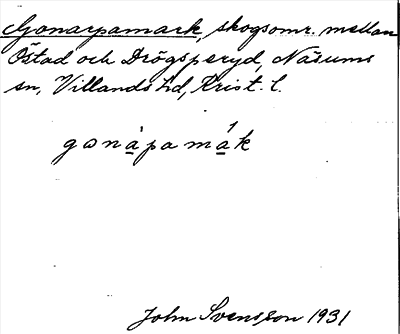 Gonarpamark, skogsomr. mellan
Östad och Drögsperyd, Näsums
sn, Villands hd, Krist. l.
gɷnàpamák
John Svensson 1931